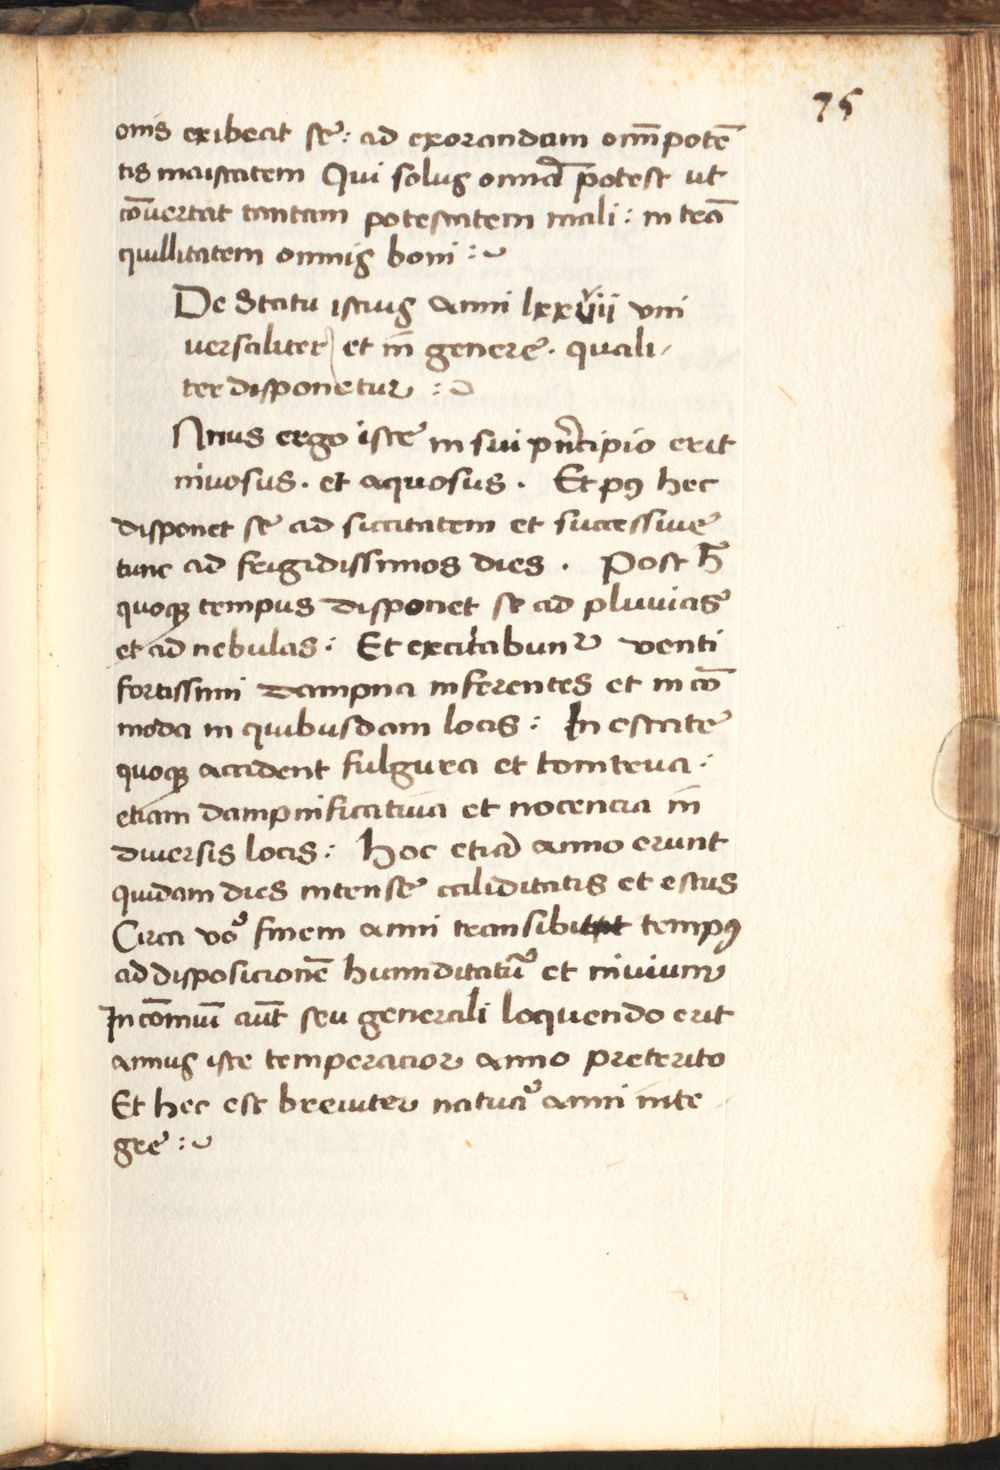 75
onis exibeat se: ad exorandam om̄potē
tis maiestatem Qui solus omnia potest ut
cōuertat tantam potestatem mali: in trā
quillitatem omnis boni :~
De Statu istius anni lxxviii vni
uersaliter et in̄ genere. quali
ter disponetur :~
Annus ergo iste in sui prīcipio erit
niuosus. et aquosus. Et pꝰ hec
disponet se ad siccitatem et successiue
tunc ad frigidissimos dies. Post h̄
quoqꝫ tempus disponet se ad pluuias
et ad nebulas: Et excitabunr̄ venti
fortissimi dampna inferentes et incō
moda in quibusdam locis: In estate
quoqꝫ accident fulgura et tonitrua:
etiam dampnificatiua et nocencia in̄
diuersis locis: Hoc etiā anno erunt
quidam dies intense caliditatis et estus
Circa vᵒ finem anni transibit tempꝰ
ad disposicionē humiditatū et niuium
In cōmuni aūt seu generali loquendo erit
annus iste temperacior anno preterito
Et hec est breuiter naturᵃ anni inte
gre :~